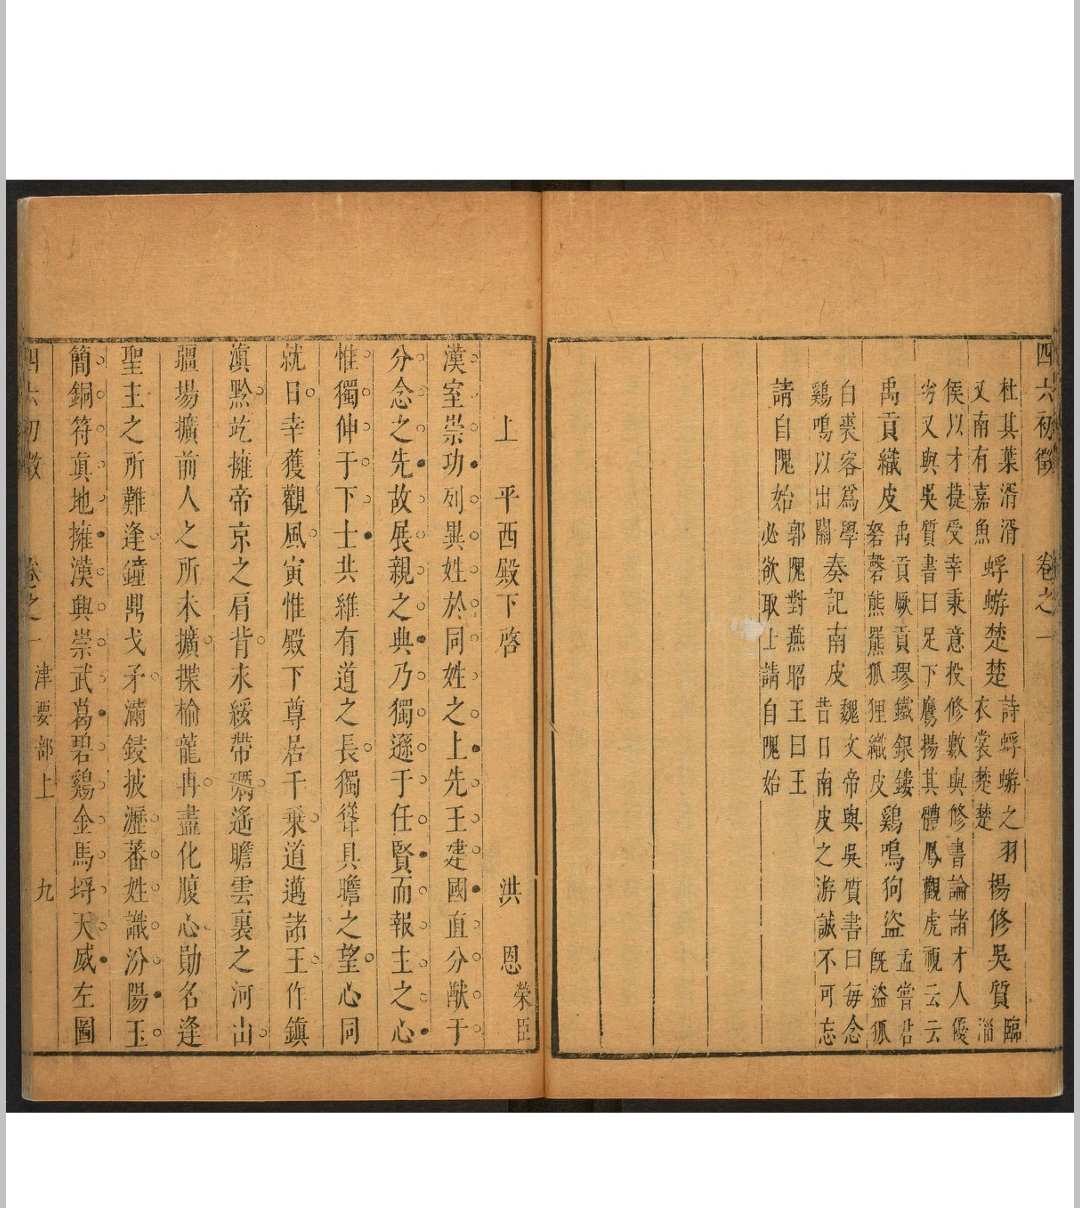 四六初徵 卷之一
杜其葉湑湑 蜉蝣楚楚 詩蜉蝣之羽 楊修吳質 臨淄
又南有嘉魚 衣裳楚楚
侯以才捷受幸秉意投修數與修書論諸才人優
劣又與吳質書曰足下鷹揚其體鳳觀虎視云云
禹貢織皮 禹貢厥貢璆鐵銀鏤 砮磬熊羆狐狸織皮 雞鳴狗盜 孟嘗君 旣盜狐
白裘客爲學 雞鳴以出關 奏記南皮 魏文帝與吳質書曰每念 昔日南皮之游誠不可忘
請自隗始 郭隗對燕昭王曰王 必欲取士請自隗始
上平西殿下啓 洪恩 榮臣
漢室崇功列異姓於同姓之上先王建國直分猷于
分念之先故展親之典乃獨遜于任賢而報主之心
惟獨伸于下士共維有道之長獨聳具瞻之望心同
就日幸獲觀風寅惟殿下尊居千乘道邁諸王作鎮
滇黔屹擁帝京之肩背永綏帶礪遙瞻雲裏之河山
疆場擴前人之所未擴揲榆龍冉盡化腹心勛名逢
聖主之所難逢鐘鼎戈矛滿錽披瀝蕃姓識汾陽玉
簡銅符真地擁漢興崇武葛碧雞金馬埒天威左圖
四六初徵 卷之一 津要部上 九